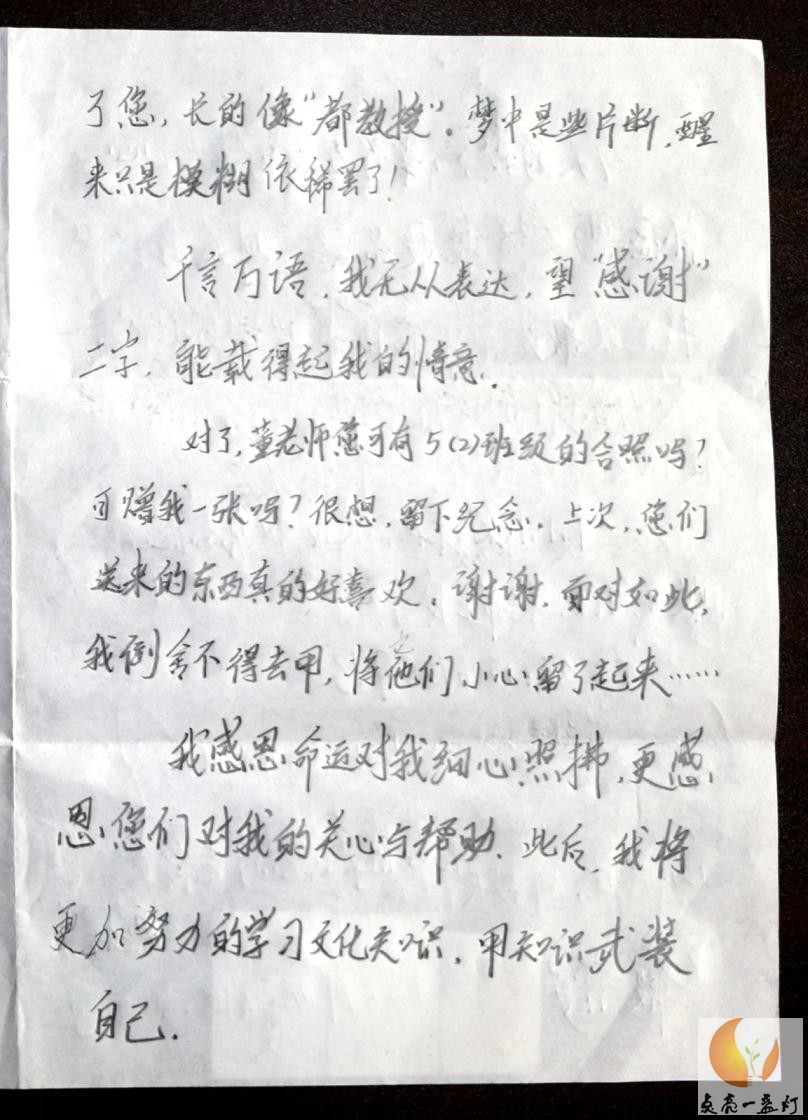 了您，长的像"都教授"。梦中是些片断，醒
来只是模糊依稀罢了！
千言万语，我无从表达，望"感谢"
二字，能载得起我的情意。
对了，董老师您可有5(2)班级的合照吗？
可赠我一张吗？很想，留下纪念。上次，您们
送来的东西真的好喜欢。谢谢，面对如此，
我倒舍不得去用，将他们小心留了起来……
我感恩命运对我细心照拂，更感
恩您们对我的关心与帮助。此后，我将
更加努力的学习文化知识，用知识武装
自己。
点亮一盏灯